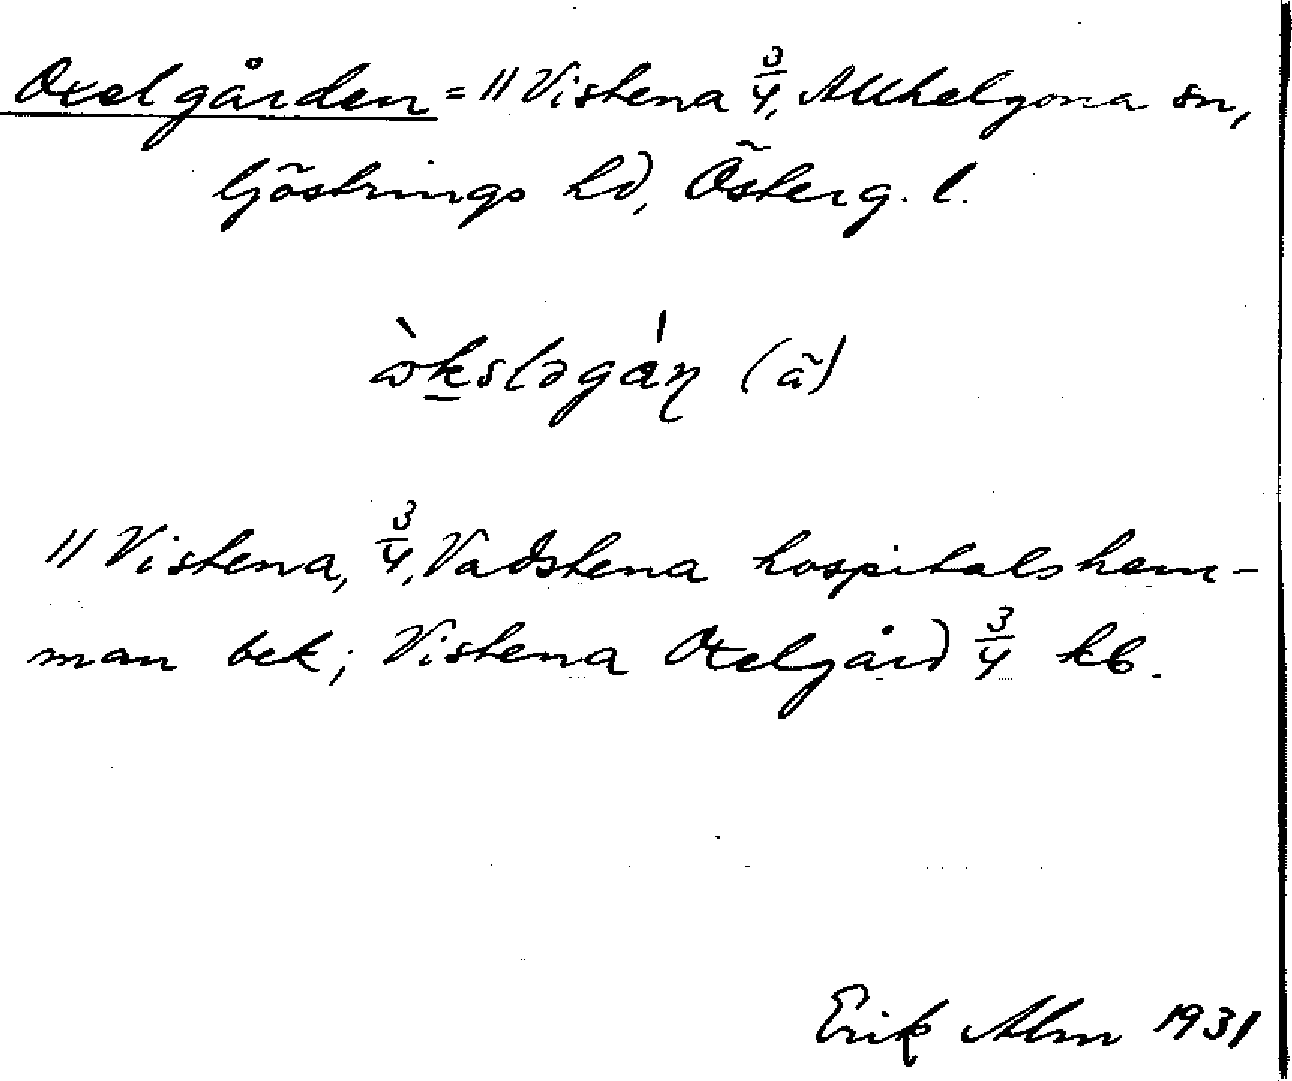 Oxelgården = // Vistena 3/4, Allhelgona sn,
Göstrings hd, Österg. l.
(ã)
// Vistena, 3/4, Vadstena hospitalshem-
man bek; Vistena Oxelgård 3/4 kb.
Erik Alm 1931